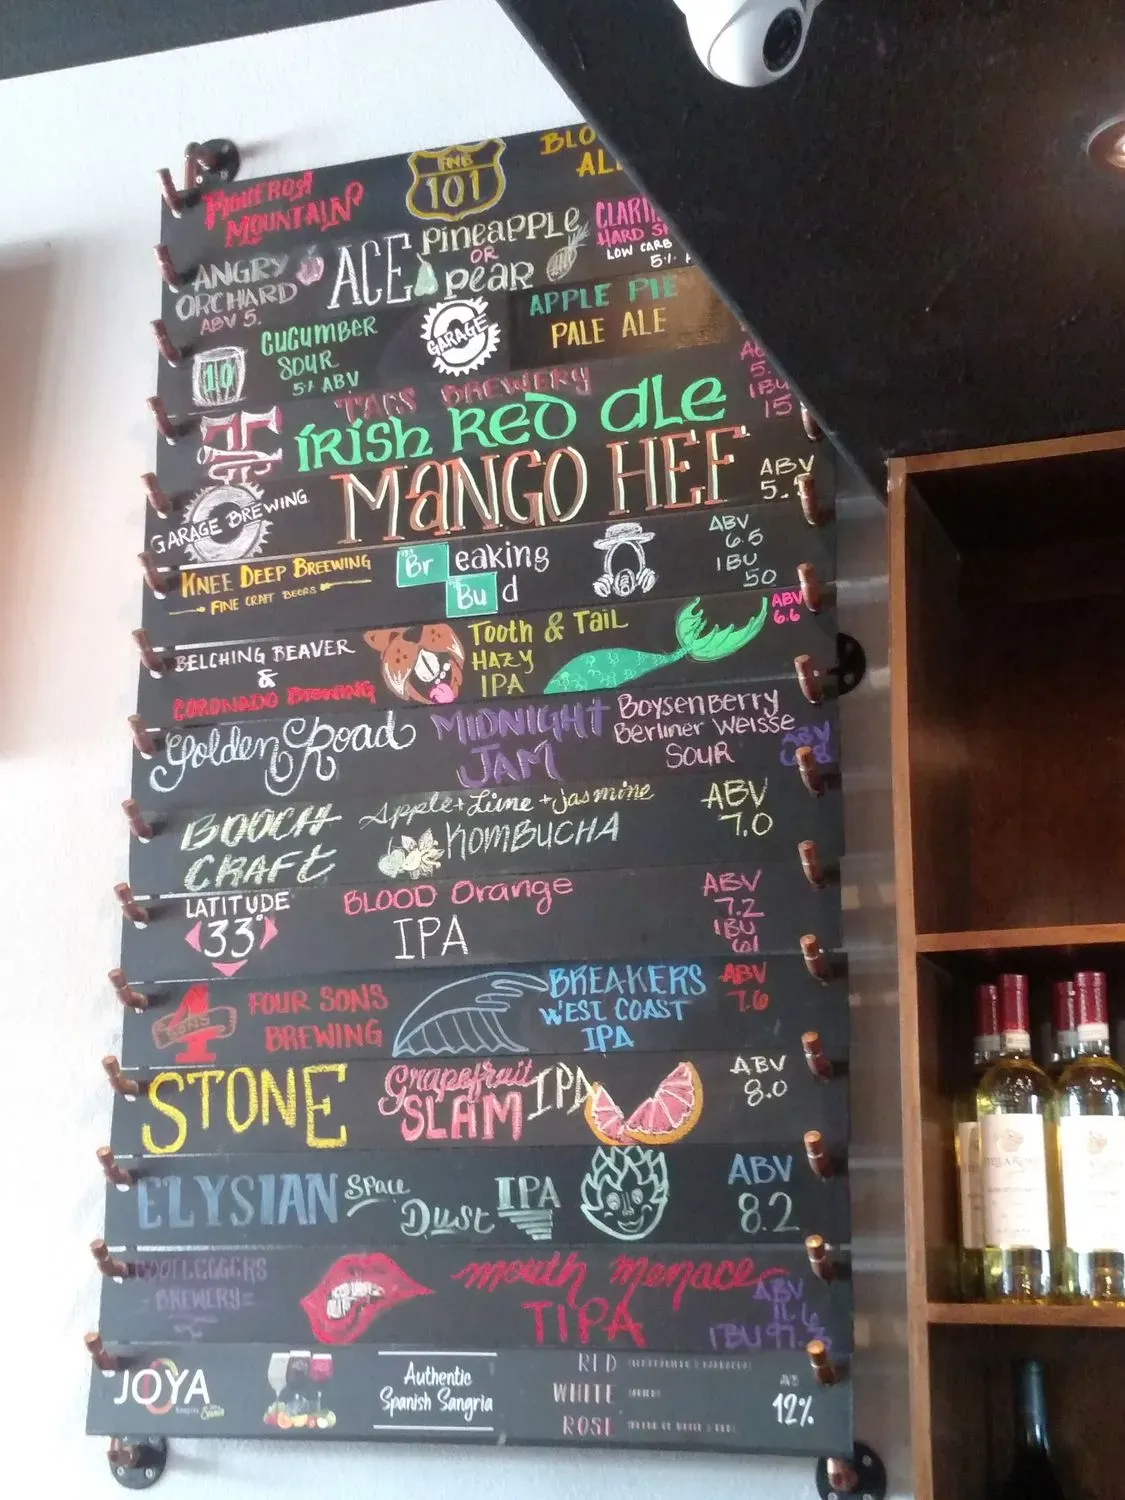 MOUNTAIN
FNB
101
ALE
ANGRY
ORCHARD
ABV 5.
ACE
PINEAPPLE
OR
PEAR
LOW CARB
5%
10
CUCUMBER
SOUR
5% ABV
GARAGE
APPLE PIE
PALE ALE
TAPS BREWERY
IRISH RED ALE
IBU
15
GARAGE BREWING
MANGO HEF
ABV
5.5
KNEE DEEP BREEWING
FINE CRAFT BEERS
Breaking
Bud
ABV
6.5
IBU
50
BELCHING BEAVER
&
CORONADO BREWING
Tooth & Tail
HAZY
IPA
ABV
6.6
Golden Road
MIDNIGHT
JAM
Boysenberry
Berliner Weisse
SOUR
ABV
BOOCH
CRAFT
Apple + Lime + Jasmine
KOMBUCHA
ABV
7.0
LATITUDE
33°
BLOOD Orange
IPA
ABV
7.2
IBU
61
4
SONS
FOUR SONS
BREWING
BREAKERS
WEST COAST
IPA
ABV
7.6
STONE
Grapefruit
SLAM IPA
ABV
8.0
ELYSIAN
SPACE
DUST
IPA
ABV
8.2
BOOTLEGGERS
BREWERY
mouth menace
TIPA
ABV
IBU 97.
JOYA
Authentic
Spanish Sangria
RED
WHITE
ROSE
12%